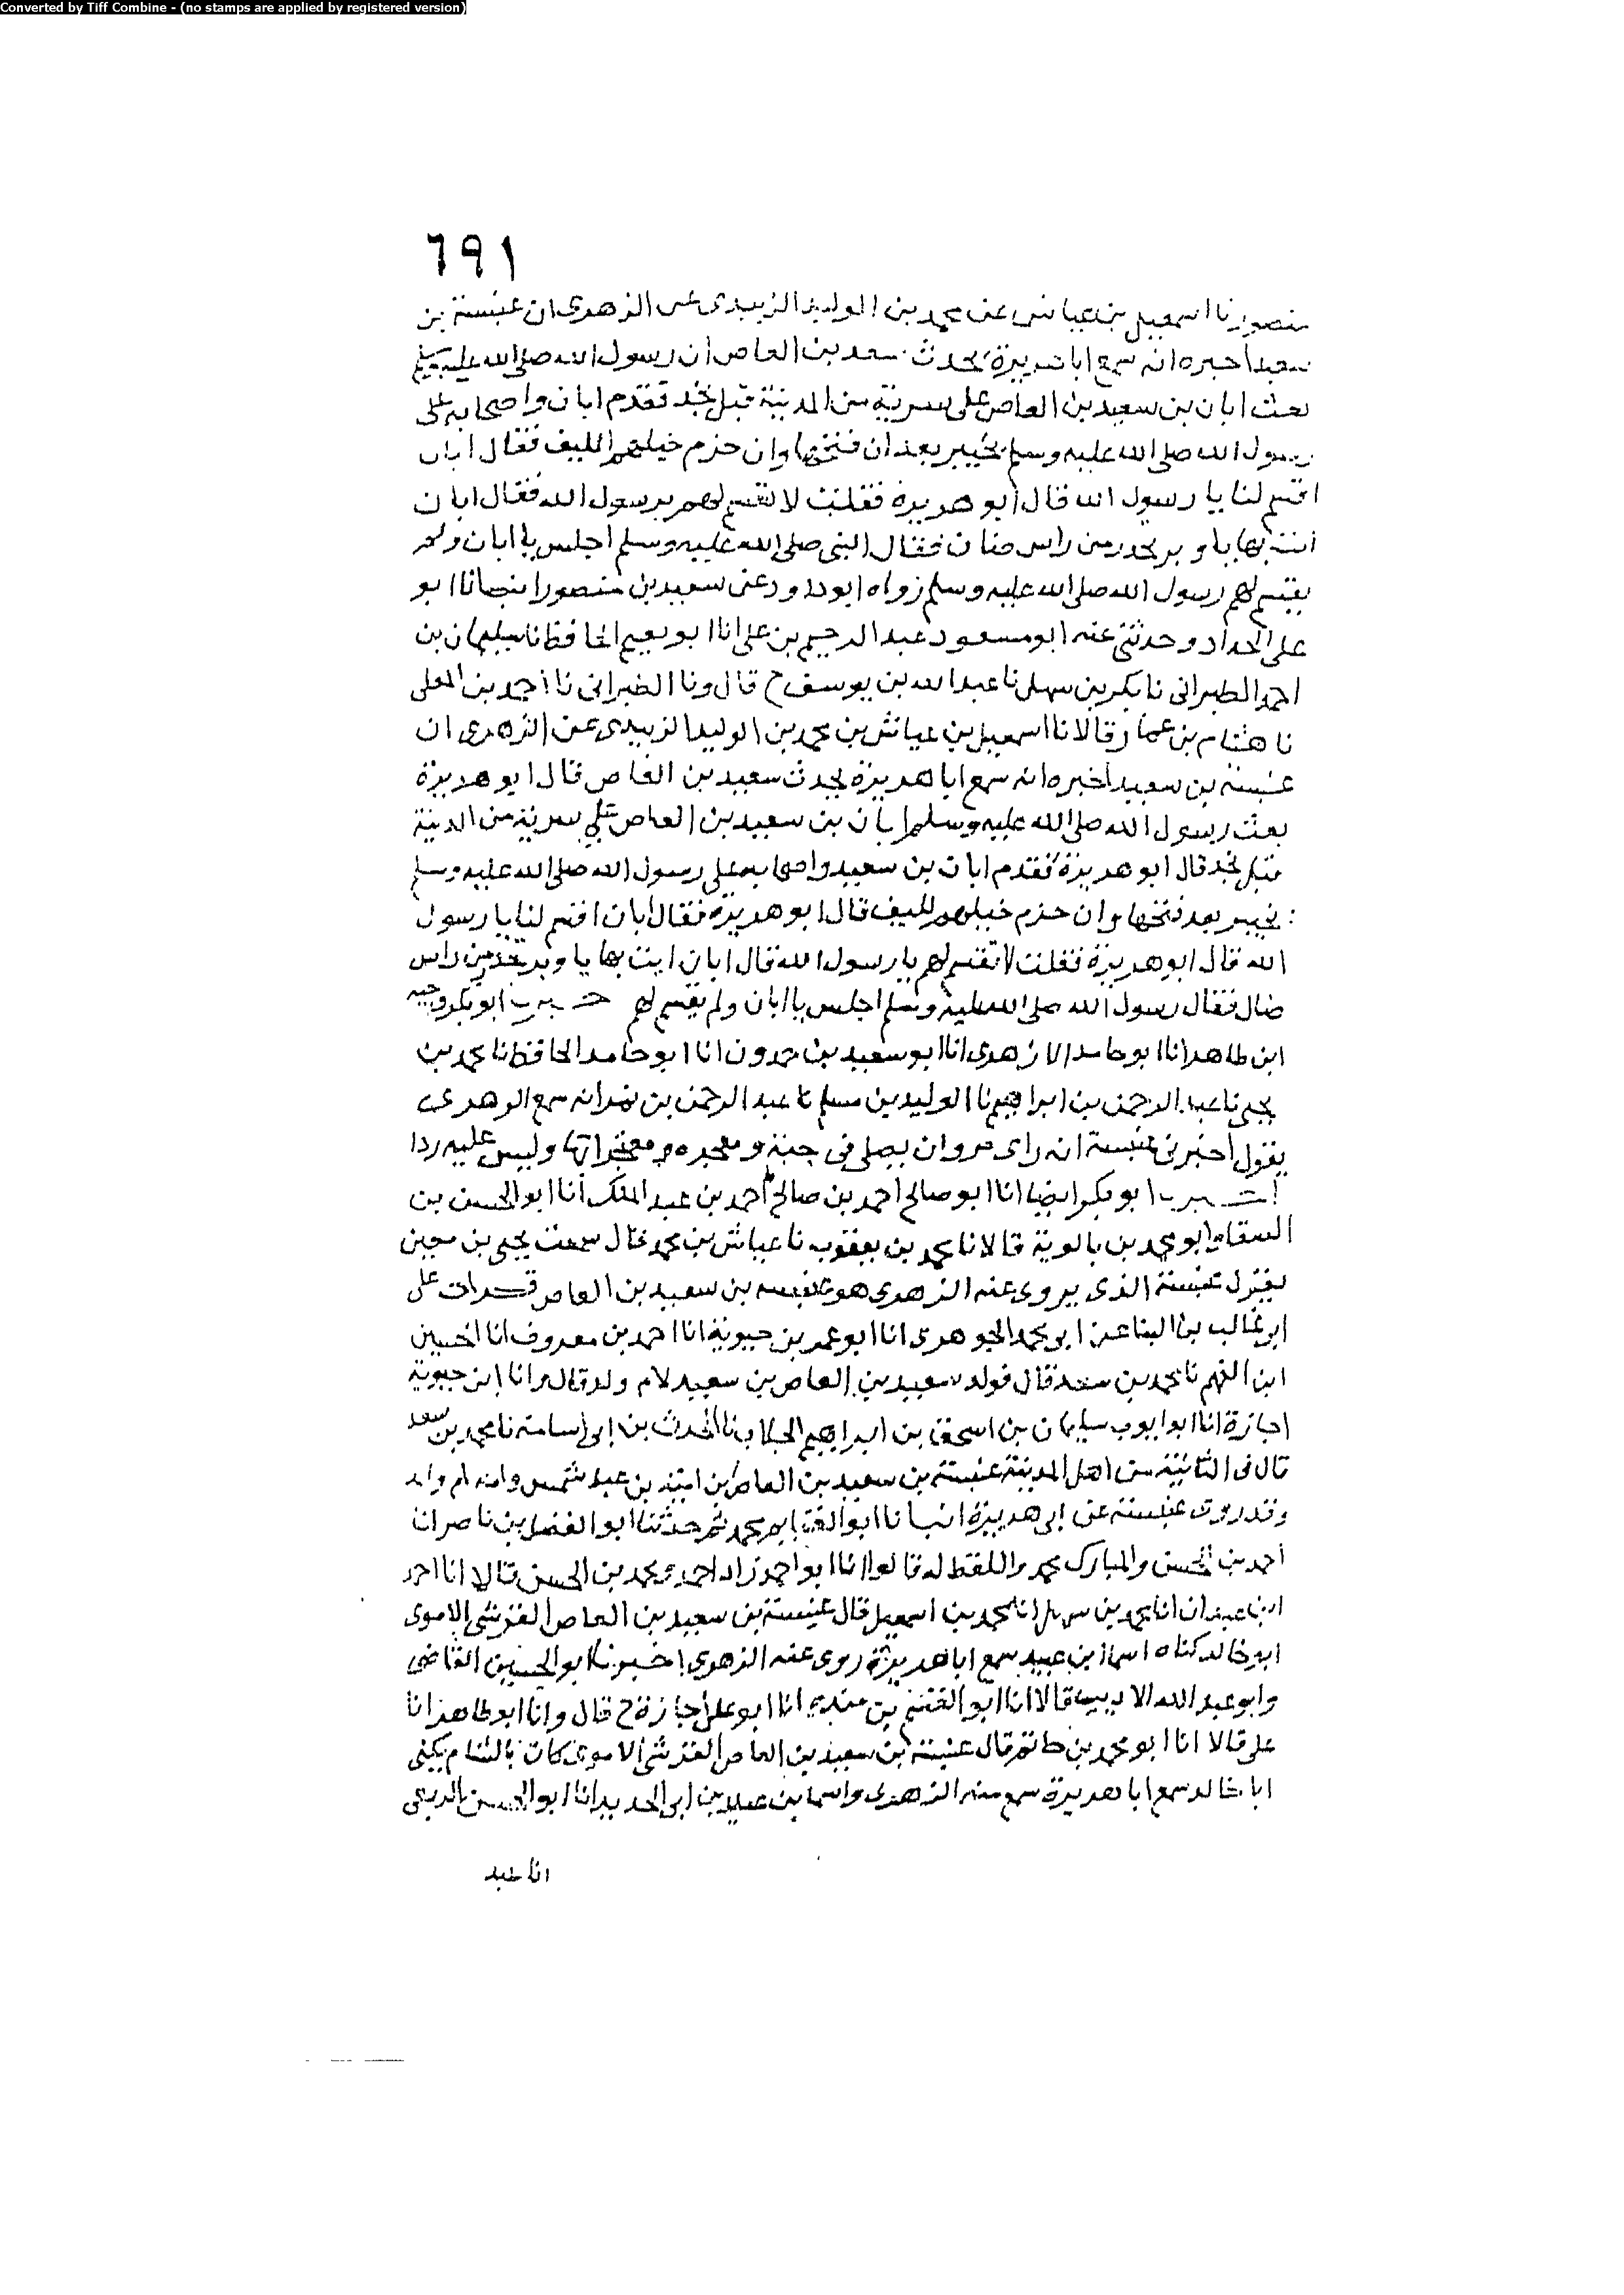 Converted by Tiff Combine - (no stamps are applied by registered version)
٦٩١
منصور نا اسمعيل بن عياش عن محمد بن الوليد الزبيدى عن الزهرى ان عنبسة بن
سعيد اخبره انه سمع ابا هريرة يحدث سعيد بن العاص ان رسول الله صلى الله عليه وسلم
بعث ابان بن سعيد بن العاص على سرية من المدينة قبل نجد فقدم ابان واصحابه على
رسول الله صلى الله عليه وسلم بخيبر بعد ان فتحها وان حزم خيلهم الليف فقال ابان
اقسم لنا يا رسول الله قال ابو هريرة فقلت لا تقسم لهم يرسول الله فقال ابان
انت بها يا وبر تحدر من راس ضان فقال النبى صلى الله عليه وسلم اجلس يا ابان ولم
يقسم لهم رسول الله صلى الله عليه وسلم رواه ابو داود عن سعيد بن منصور انبانا ابو
على الحداد وحدثنى عنه ابو مسعود عبد الرحيم بن على انا ابو نعيم الحافظ نا سليمان بن
احمد الطبرانى نا بكر بن سهل نا عبد الله بن يوسف ح قال ونا الطبرانى نا احمد بن المعلى
نا هشام بن عمار قالا نا اسمعيل بن عياش بن محمد بن الوليد الزبيدى عن الزهرى ان
عنبسة بن سعيد اخبره انه سمع ابا هريرة يحدث سعيد بن العاص قال ابو هريرة
بعث رسول الله صلى الله عليه وسلم ابان بن سعيد بن العاص على سرية من المدينة
قبل نجد قال ابو هريرة فقدم ابان بن سعيد واصحابه على رسول الله صلى الله عليه وسلم
بخيبر بعد فتحها وان حزم خيلهم لليف قال ابو هريرة فقال ابان اقسم لنا يا رسول
الله قال ابو هريرة فقلت لا تقسم لهم يا رسول الله قال ابان انت بها يا وبر تحدر من راس
ضال فقال رسول الله صلى الله عليه وسلم اجلس يا ابان ولم يقسم لهم ابو بكر وجيه
ابن طاهر انا ابو حامد الازهرى انا ابو سعيد بن حمدون انا ابو حامد الحافظ نا محمد بن
يحيى نا عبد الرحمن بن ابراهيم نا الوليد بن مسلم نا عبد الرحمن بن نمر انه سمع الزهرى
يقول اخبرنى عنبسة انه راى مروان يصلى فى جبة وليس عليه ردا
ابو بكر ايضا انا ابو صالح احمد بن صالح احمد بن عبد الملك انا ابو الحسن بن
السقا وابو محمد بن بالوية قالا نا محمد بن يعقوب نا عباش بن محمد قال سمعت يحيى بن معين
يقول عنبسة الذى يروى عنه الزهرى هو عنبسه بن سعيد بن العاص قرات على
ابى غالب بن البنا عن ابو محمد الجوهرى انا ابو عمر بن حيوية انا احمد بن معروف انا الحسين
ابن الفهم نا محمد بن سعد قال فولد سعيد بن العاص بن سعيد لام ولد قال وانا ابن حيوية
اجازة انا ابو ايوب سليمان بن اسحق بن ابراهيم الجلاب نا الحرث بن ابى اسامة نا محمد بن سعد
قال فى الثانية من اهل المدينة عنبسة بن سعيد بن العاص بن امية بن عبد شمس وامه ام ولد
وقد روى عنبسة عن ابى هريرة انبانا ابو الغنايم محمد ثم حدثنا ابو الفضل بن ناصر انا
احمد بن الحسن والمبارك محمد واللفظ له قالوا انا ابو احمد زاد احمد ومحمد بن الحسن قالا انا احمد
ابن عبدان انا محمد بن سهل انا محمد بن اسمعيل قال عنبسة بن سعيد بن العاص القرشى الاموى
ابو خالد كناه اسما بن عبيد سمع ابا هريرة روى عنه الزهرى اخبرنا ابو الحسين القاضى
وابو عبد الله الاديب قالا انا ابو القسم بن منده انا ابو على اجازة ح قال وانا ابو طاهر انا
على قالا انا ابو محمد بن حاتم قال عنبسة بن سعيد بن العاص القرشى الاموى كان بالشام يكنى
ابا خالد سمع ابا هريرة سمع منه الزهرى واسما بن عبيد بن ابى الحديد انا ابو الحسن الربعى
انا عبد